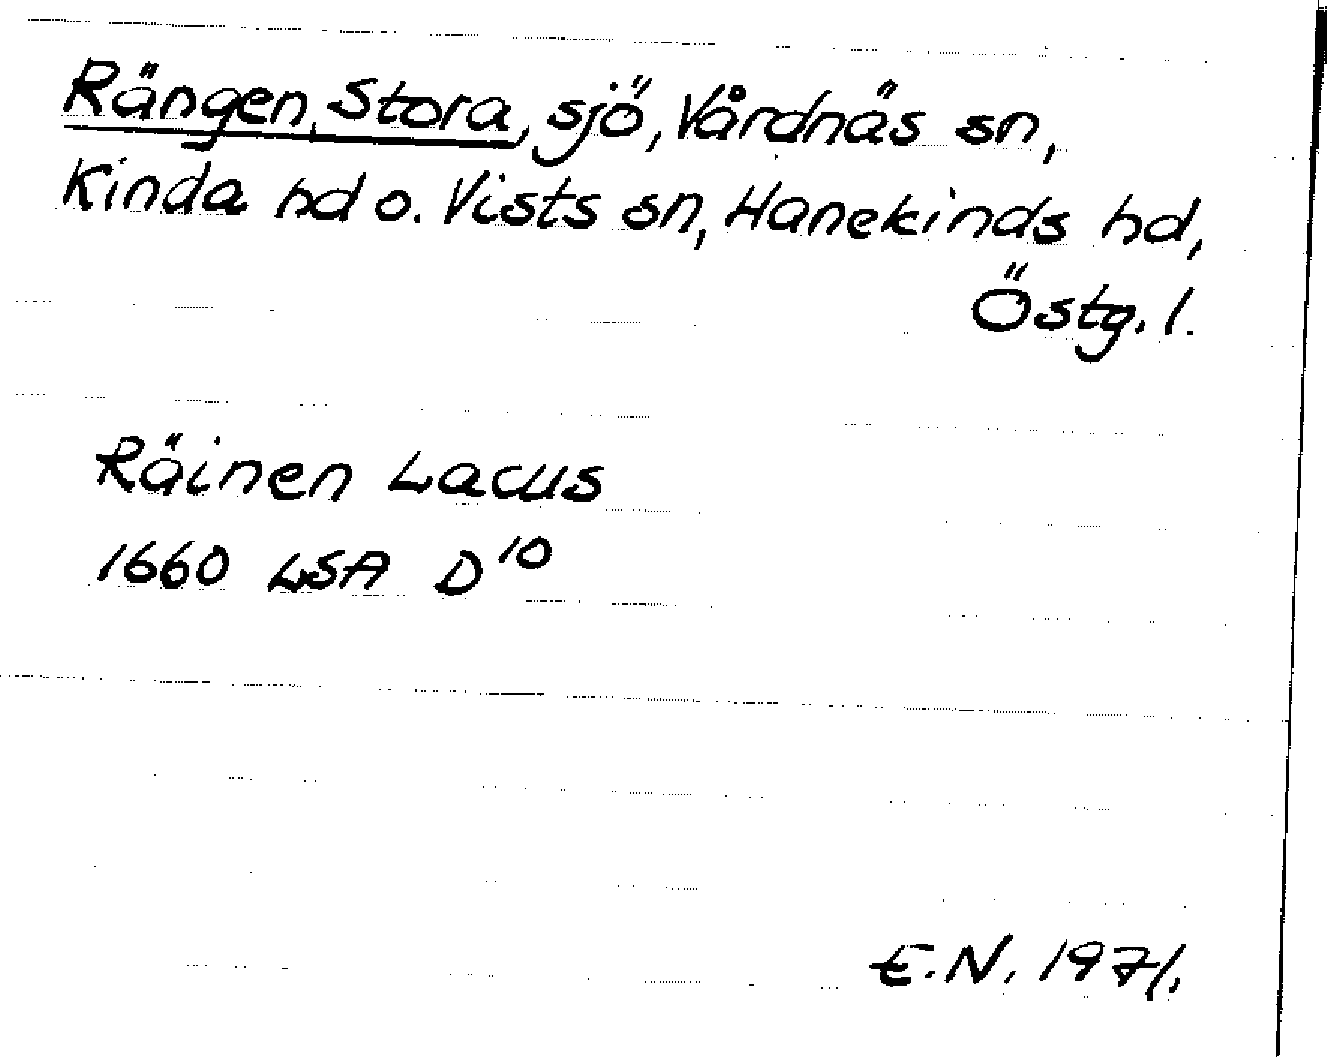 Rängen, Stora, sjö, Vårdnäs sn,
Kinda hd o. Vists sn, Hanekinds hd,
Östg. l.
Räinen Lacus
1660 LSA D¹⁰
E.N. 1971.